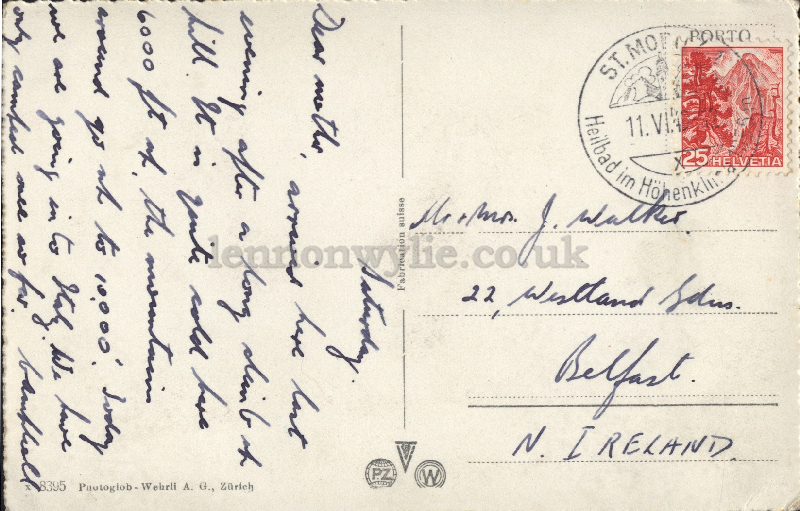 Saturday.
Dear mother, arrived here last
evening after a long climb up
hill. It is quite cold here
6000 ft up, the mountains
around go up to 10,000'. Today
we are going in to Italy. We have
only camped once so far.
PORTO
ST. MO
11.VI.4
Heilbad im Höhenkli
25 HELVETIA
Mr & Mrs. J. Walker.
22, Westland Gdns.
Belfast.
N. IRELAND.
Fabrication suisse
lennonwylie.co.uk
PZ
W
8395 Photoglob-Wehrli A. G., Zürich